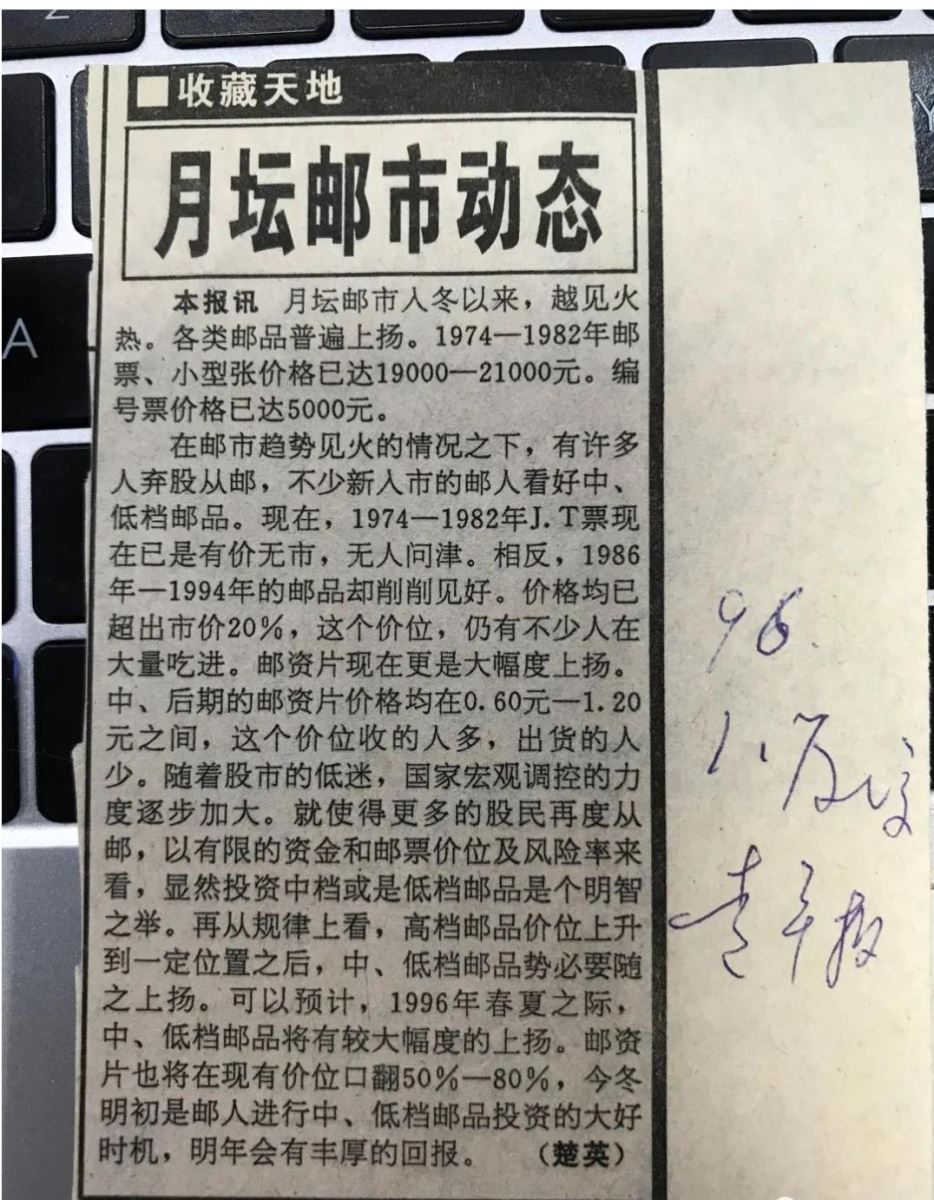 ■收藏天地
月坛邮市动态
本报讯 月坛邮市入冬以来，越见火
热。各类邮品普遍上扬。1974—1982年邮
票、小型张价格已达19000—21000元。编
号票价格已达5000元。
在邮市趋势见火的情况之下，有许多
人弃股从邮，不少新入市的邮人看好中、
低档邮品。现在，1974—1982年J.T票现
在已是有价无市，无人问津。相反，1986
年—1994年的邮品却削削见好。价格均已
超出市价20%，这个价位，仍有不少人在
大量吃进。邮资片现在更是大幅度上扬。
中、后期的邮资片价格均在0.60元—1.20
元之间，这个价位收的人多，出货的人
少。随着股市的低迷，国家宏观调控的力
度逐步加大。就使得更多的股民再度从
邮，以有限的资金和邮票价位及风险率来
看，显然投资中档或是低档邮品是个明智
之举。再从规律上看，高档邮品价位上升
到一定位置之后，中、低档邮品势必要随
之上扬。可以预计，1996年春夏之际，
中、低档邮品将有较大幅度的上扬。邮资
片也将在现有价位口翻50%—80%，今冬
明初是邮人进行中、低档邮品投资的大好
时机，明年会有丰厚的回报。 （楚英）
96.
1.7
青年报
A